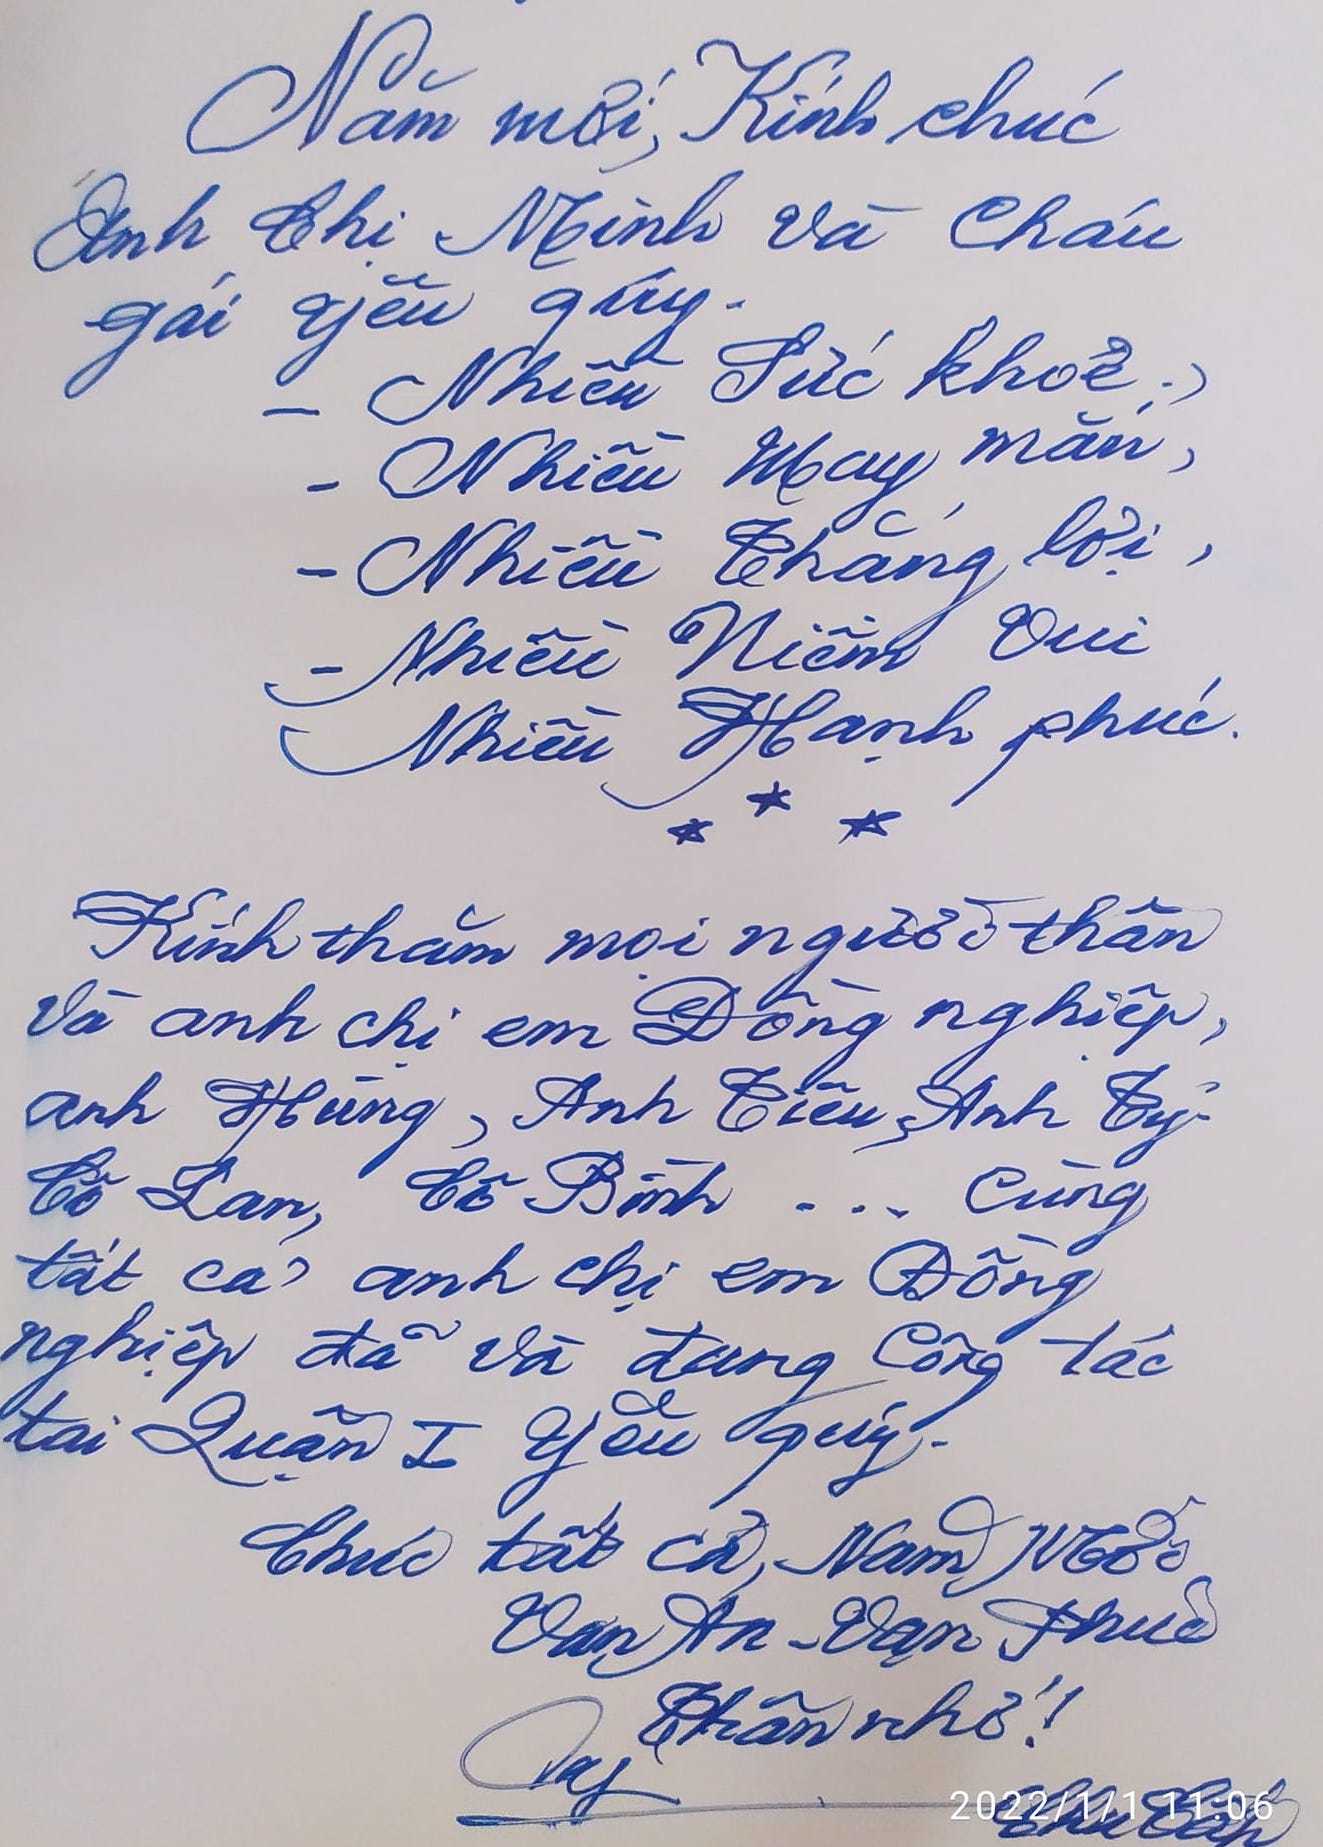 Năm mới, Kính chúc
Anh Chị Minh và Cháu
gái yêu qúy.
- Nhiều Sức khoẻ.,
- Nhiều May mắn,
- Nhiều Thắng lợi,
- Nhiều Niềm Vui
Nhiều Hạnh phúc.
* * *
Kính thăm mọi người thân
và anh chị em Đồng nghiệp,
anh Hùng, Anh Tiêu, Anh Tý
Cô Lan, Cô Bình ... Cùng
tất cả anh chị em Đồng
nghiệp đã và đang Công tác
tại Quận I yêu quý.
Chúc tất cả, Năm Mới
Vạn An - Vạn Phúc
Thân nhớ!
2022/1/1 11:06